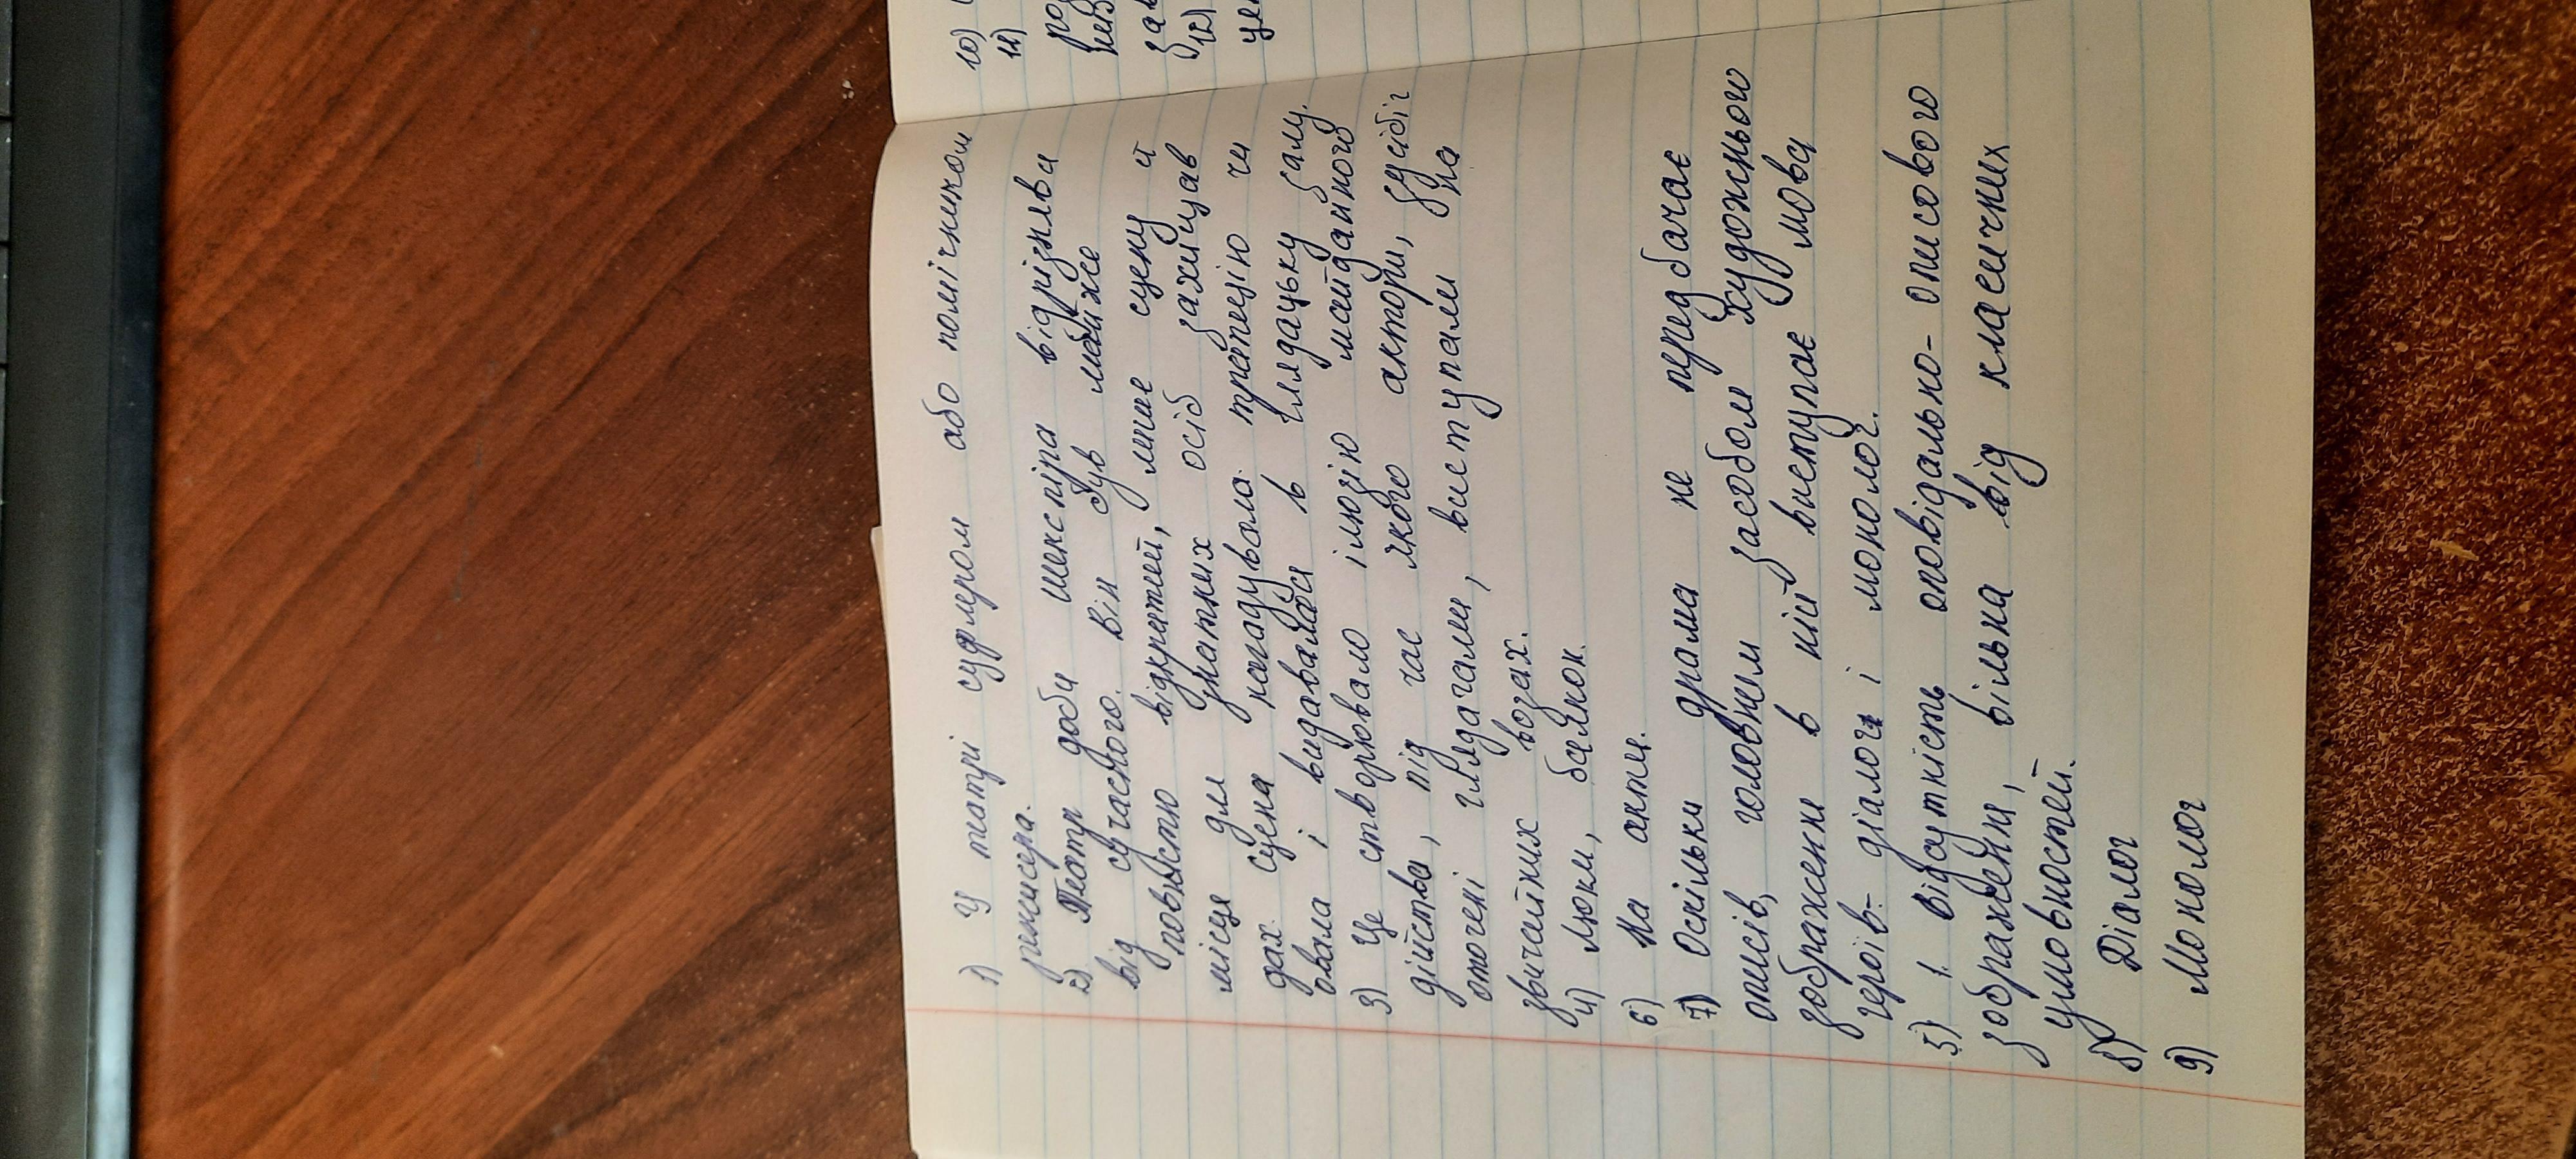 1) У театрі суфлером або помічником
режисера.
2) Театр доби Шекспіра відрізнява
від сучасного. Він був майже
повністю відкритий, лише сцену й
місця для знатних осіб захищав
дах. Сцена нагадувала трапецію чи
овала і видавалася в глядацьку залу.
3) Це створювало ілюзію майданного
дійства, під час якого актори, зусібіч
оточені глядачами, виступали на
звичайних возах.
4) Люки, балкон.
6) На акти.
7) Оскільки драма не передбачає
описів, головним засобом художнього
зображення в ній виступає мова
героїв- діалоги і монолог.
5) 1. Відсутність оповідально- описового
зображення, вільна від класичних
умовностей.
8) Діалог
9) Монолог
10)
11)
12)